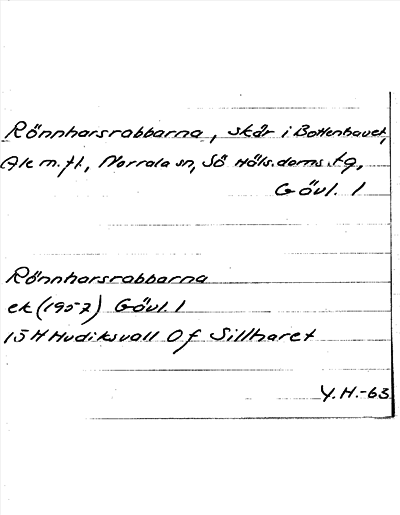 Rönnharsrabbarna, skär i Bottenhavet,
Ale m.fl., Norrala sn, Sö Häls. doms. tg,
Gävl. l
Rönnharsrabbarna
ek (1957) Gävl. l
15 H Hudiksvall Of Sillharet
Y.H.-63